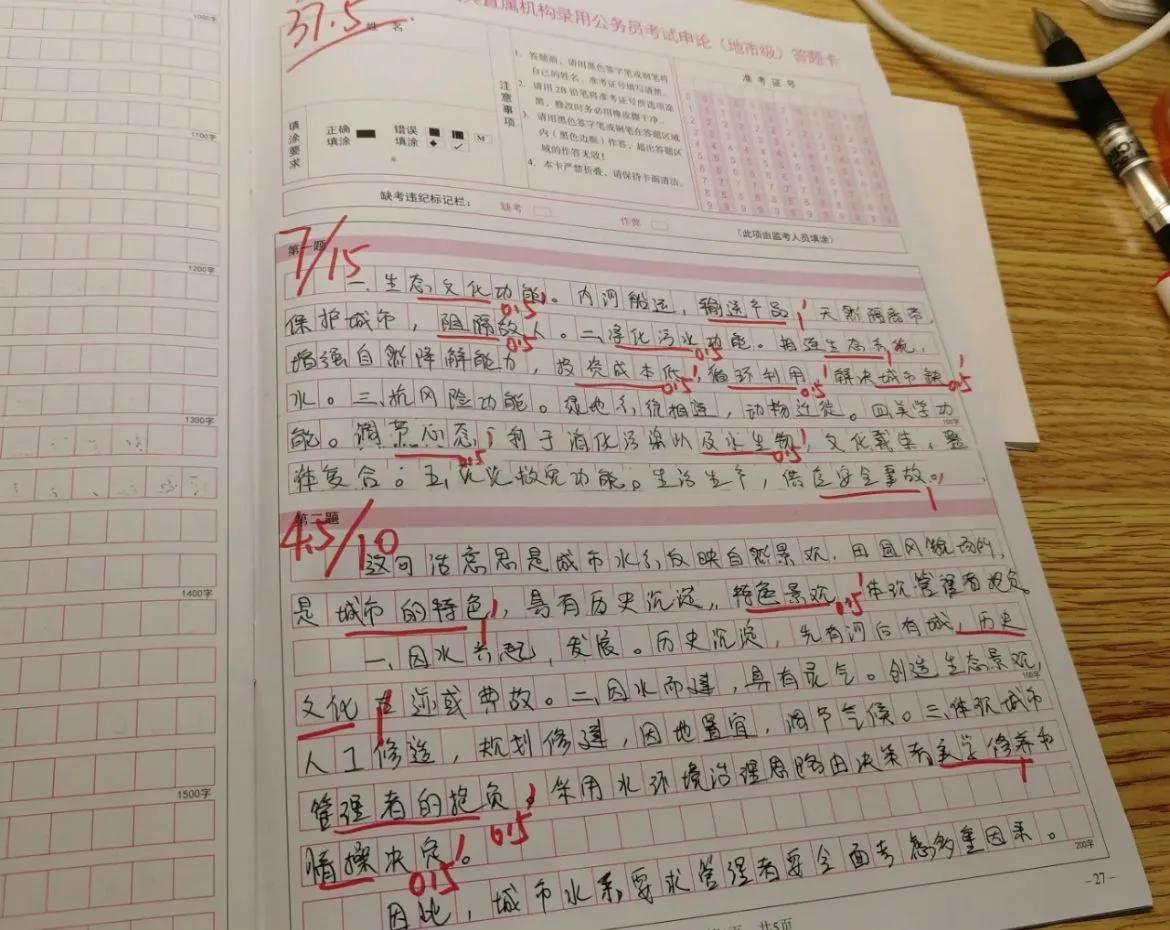 37.5
直属机构录用公务员考试申论（地市级）答题卡
姓 名
准 考 证 号
注意事项
1. 答题前，请用黑色签字笔或钢笔将
自己的姓名、准考证号填写清楚。
2. 请用2B铅笔将准考证号所选项涂
黑，修改时务必用橡皮擦干净。
3. 请用黑色签字笔或钢笔在答题区域
内（黑色边框）作答，超出答题区
域的作答无效！
4. 本卡严禁折叠，请保持卡面清洁。
填涂要求
正确填涂
错误填涂
缺考违纪标记栏：
缺考
作弊
（此项由监考人员填涂）
第一题
7/15
一、生态文化功能。内河船运，输送产品，天然隔离带，
保护城市，阻隔敌人。二、净化污水功能。相连生态系统，
增强自然降解能力，投资成本低，循环利用，解决城市缺
水。三、抗风险功能。绿地系统相连，动物迁徙。四、美学功
能。调节心态，利于消化污染以及水生物，文化载体，整
体复合。五、救灾功能。生活生产，供应安全事故。
100字
第二题
4.5/10
这句话意思是城市水系反映自然景观，田园风貌场所，
是城市的特色，具有历史沉淀，特色景观，体现管理者抱负
一、因水兴起，发展。历史沉淀，先有河后有城，历史
文化古迹或典故。二、因水而建，具有灵气。创造生态景观，
100字
人工修造，规划修建，因地置宜，调节气候。三、体现城市
管理者的抱负，采用水环境治理思路由决策者美学修养和
情操决定。
因此，城市水系要求管理者要全面考虑多重因素。
200字
-27-
共5页
1000字
1100字
1200字
1300字
1400字
1500字